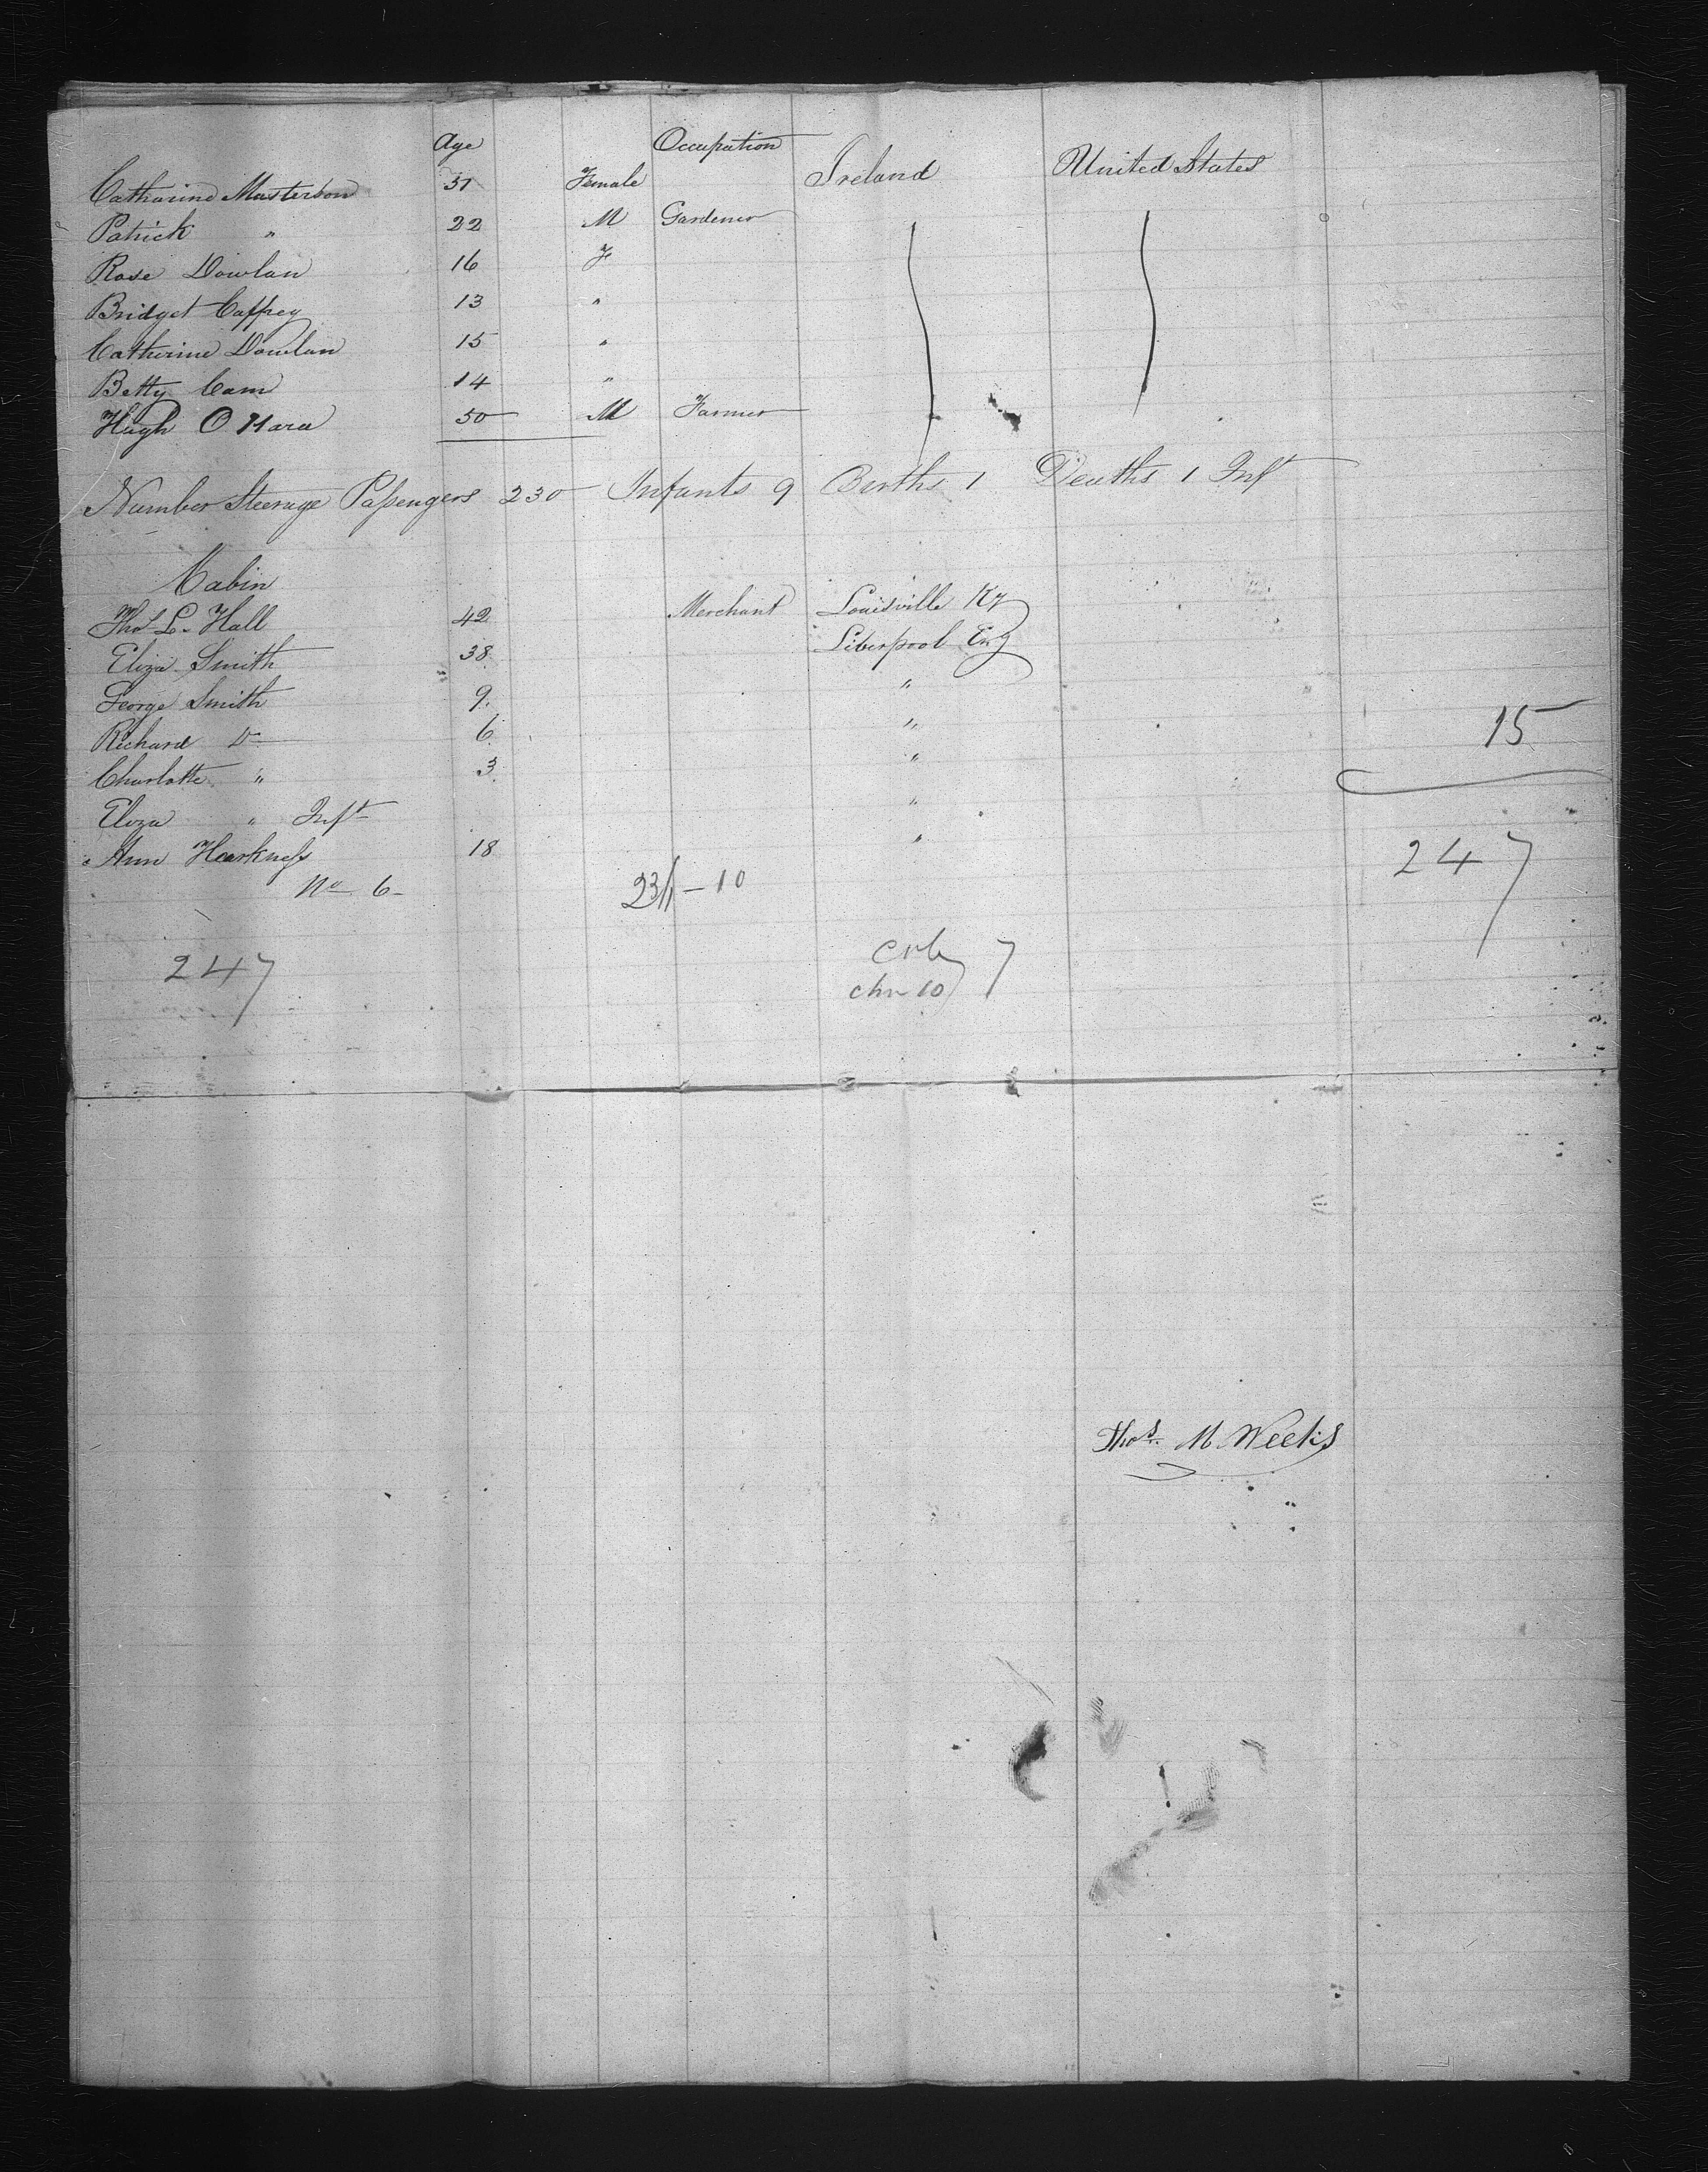 Age Occupation
Catharine Masterson 31 Female Ireland United States
Patrick " 22 M Gardener
Rose Dowlan 16 F
Bridget Caffrey 13 "
Catherine Dowlan 15 "
Betty Cam 14 "
Hugh O Hara 50 M Farmer
Number Steerage Passengers 230 Infants 9 Births 1 Deaths 1 Inft
Cabin
Thos L. Hall 42 Merchant Louisville Ky
Eliza Smith 38 Liverpool Eng
George Smith 9 "
Richard Do 6 " 15
Charlotte " 3 "
Eliza " Inft "
Ann Harkness 18 " 247
No 6 - 10
247 7
chn 10
Thos. M Weeks